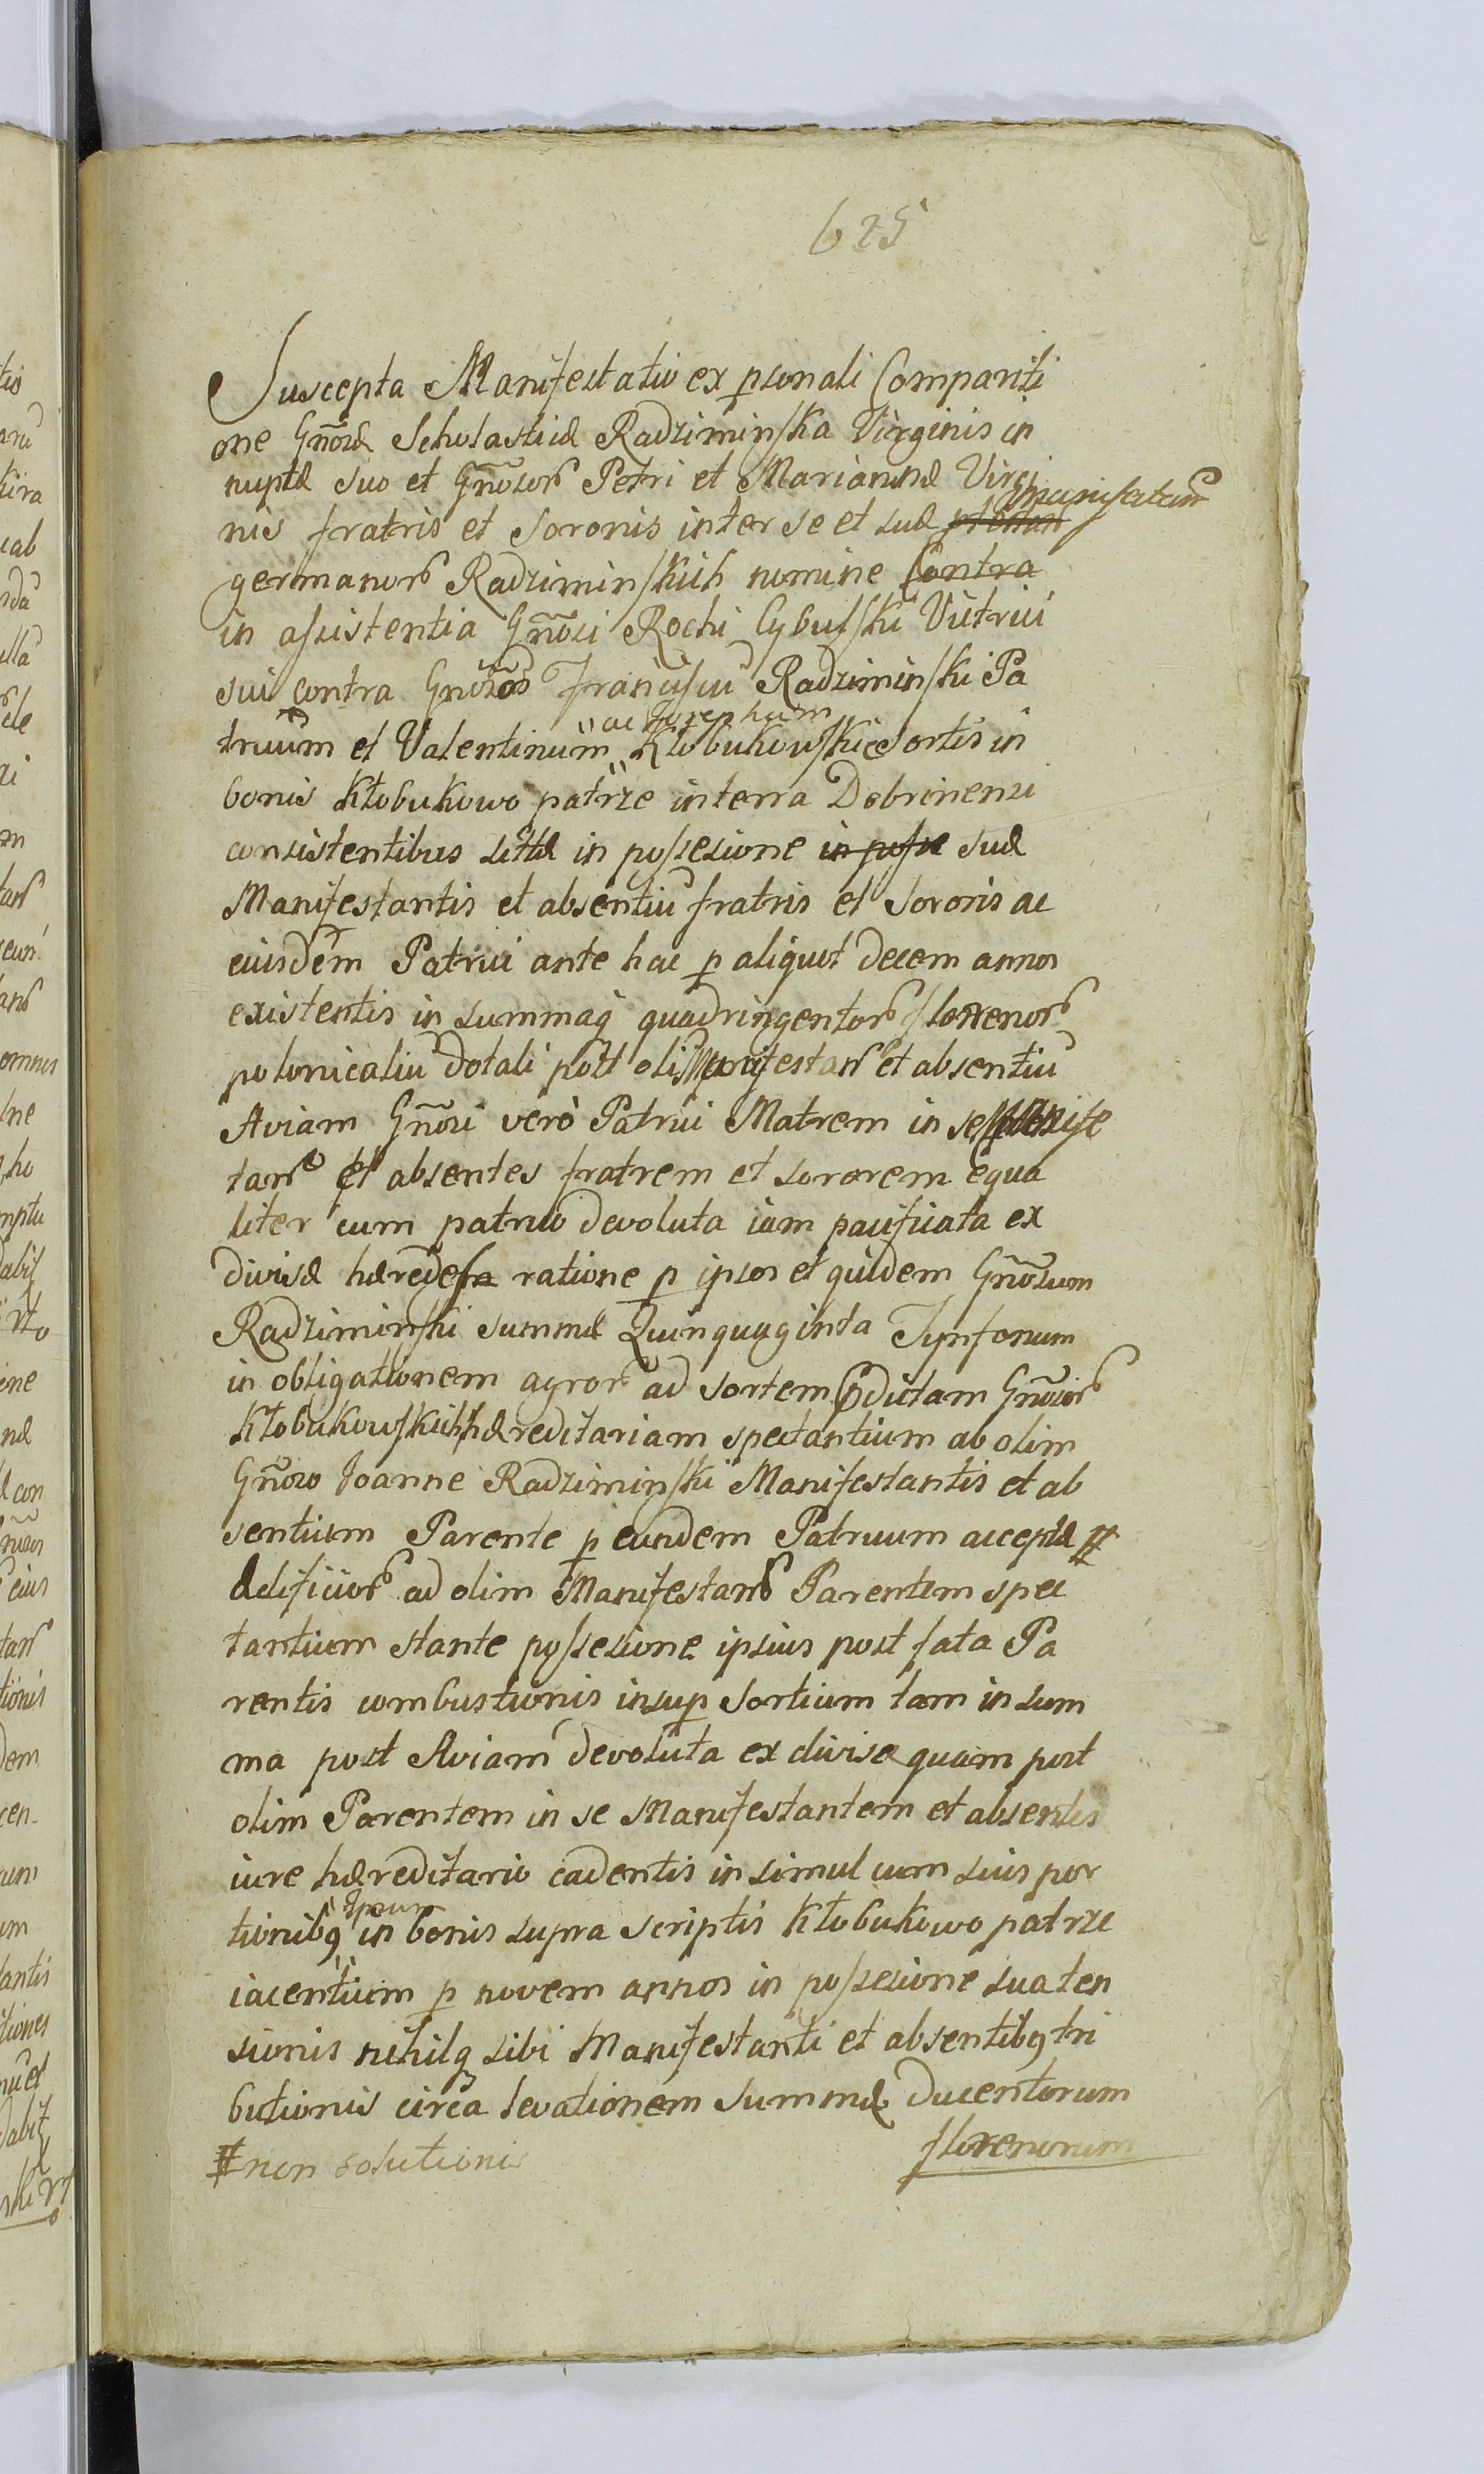 625
Suscepta Manifestatio ex psonali Compariti
one Gñosæ Scholasticæ Radziminska Virginis in
nuptæ suo et Gñosor Petri et Mariannæ Virgi
nis fratris et Sororis inter se et suæ manifestan
germanor Radziminskich nomine Contra
in assistentia Gñosi Rochi Cybulski Vitrici
sui contra Gñosos Franciscũ Radziminski Pa
truum et Valentinum ac Josephum Kłobukowskie Sortis in
bonis Kłobukowo patrze in terra Dobrinensi
consistentibus sittæ in possesione in posse suæ
Manifestantis et absentiũ fratris et Sororis ac
eiusdem Patrui ante hac p aliquot decem annos
existentis in summaq quadringentor florenor
polonicaliũ dotali post olim Manifestan et absentiũ
Aviam Gñosi vero Patrui Matrem in se Manife
tan et absentes fratrem et sororem equa
liter cum patruo devoluta iam pacificata ex
divisæ hærede ratione p ipsos et quidem Gñosum
Radziminski summæ Quinquaginta Tynfonum
in obligationem agror ad sortem pdictam Gñosor
Kłobukowskich hæreditariam spectantium ab olim
Gñoso Joanne Radziminski Manifestantis et ab
sentium Parente p eundem Patruum acceptæ #
Ædificior ad olim Manifestan Parentem spec
tantium stante possesione ipsius post fata Pa
rentis combustionis insup Sortium tam in sum
ma post Aviam devoluta ex divisæ quam post
olim Parentem in se Manifestantem et absentes
iure hæreditario cadentis in simul cum suis por
tionibq ipsur in bonis supra scriptis Kłobukowo patrze
iacentium p novem annos in possesione sua ten
sionis nihilq sibi Manifestanti et absentibq tri
butionis circa levationem summæ Ducentorum
# non solutionis florenorum